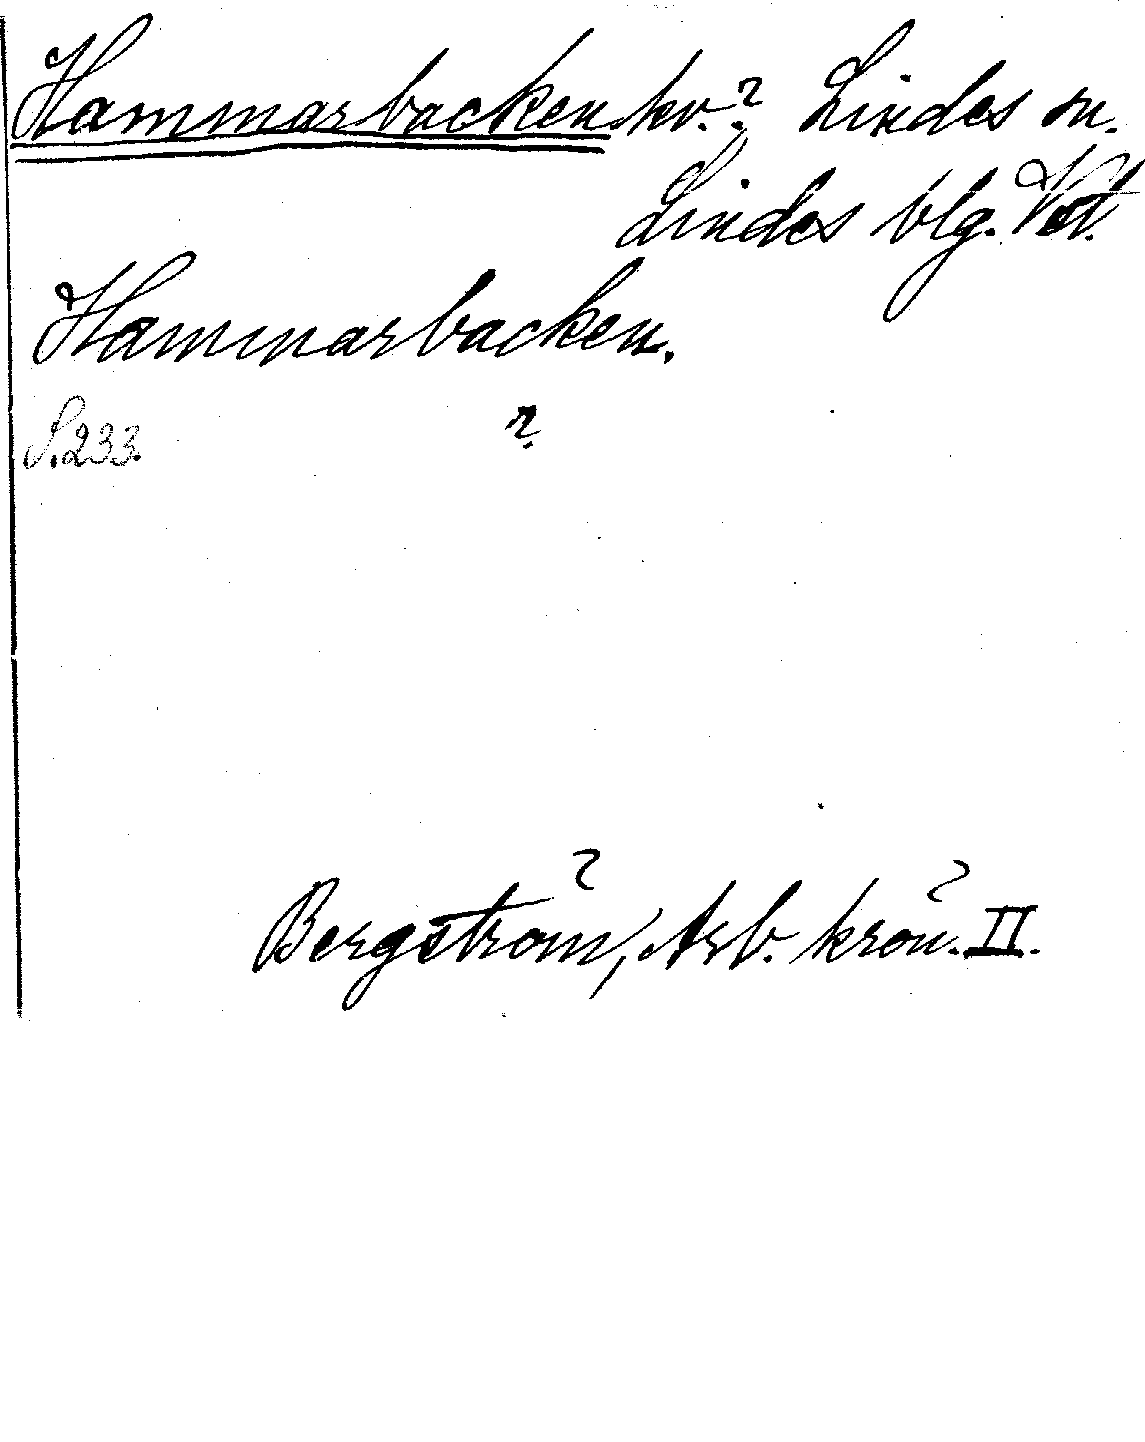 Hammarbacken kv.? Lindes sn.
Lindes blg. Vstm.
Hammarbacken.
S. 233.
?
Bergström, Arb. krön. II.